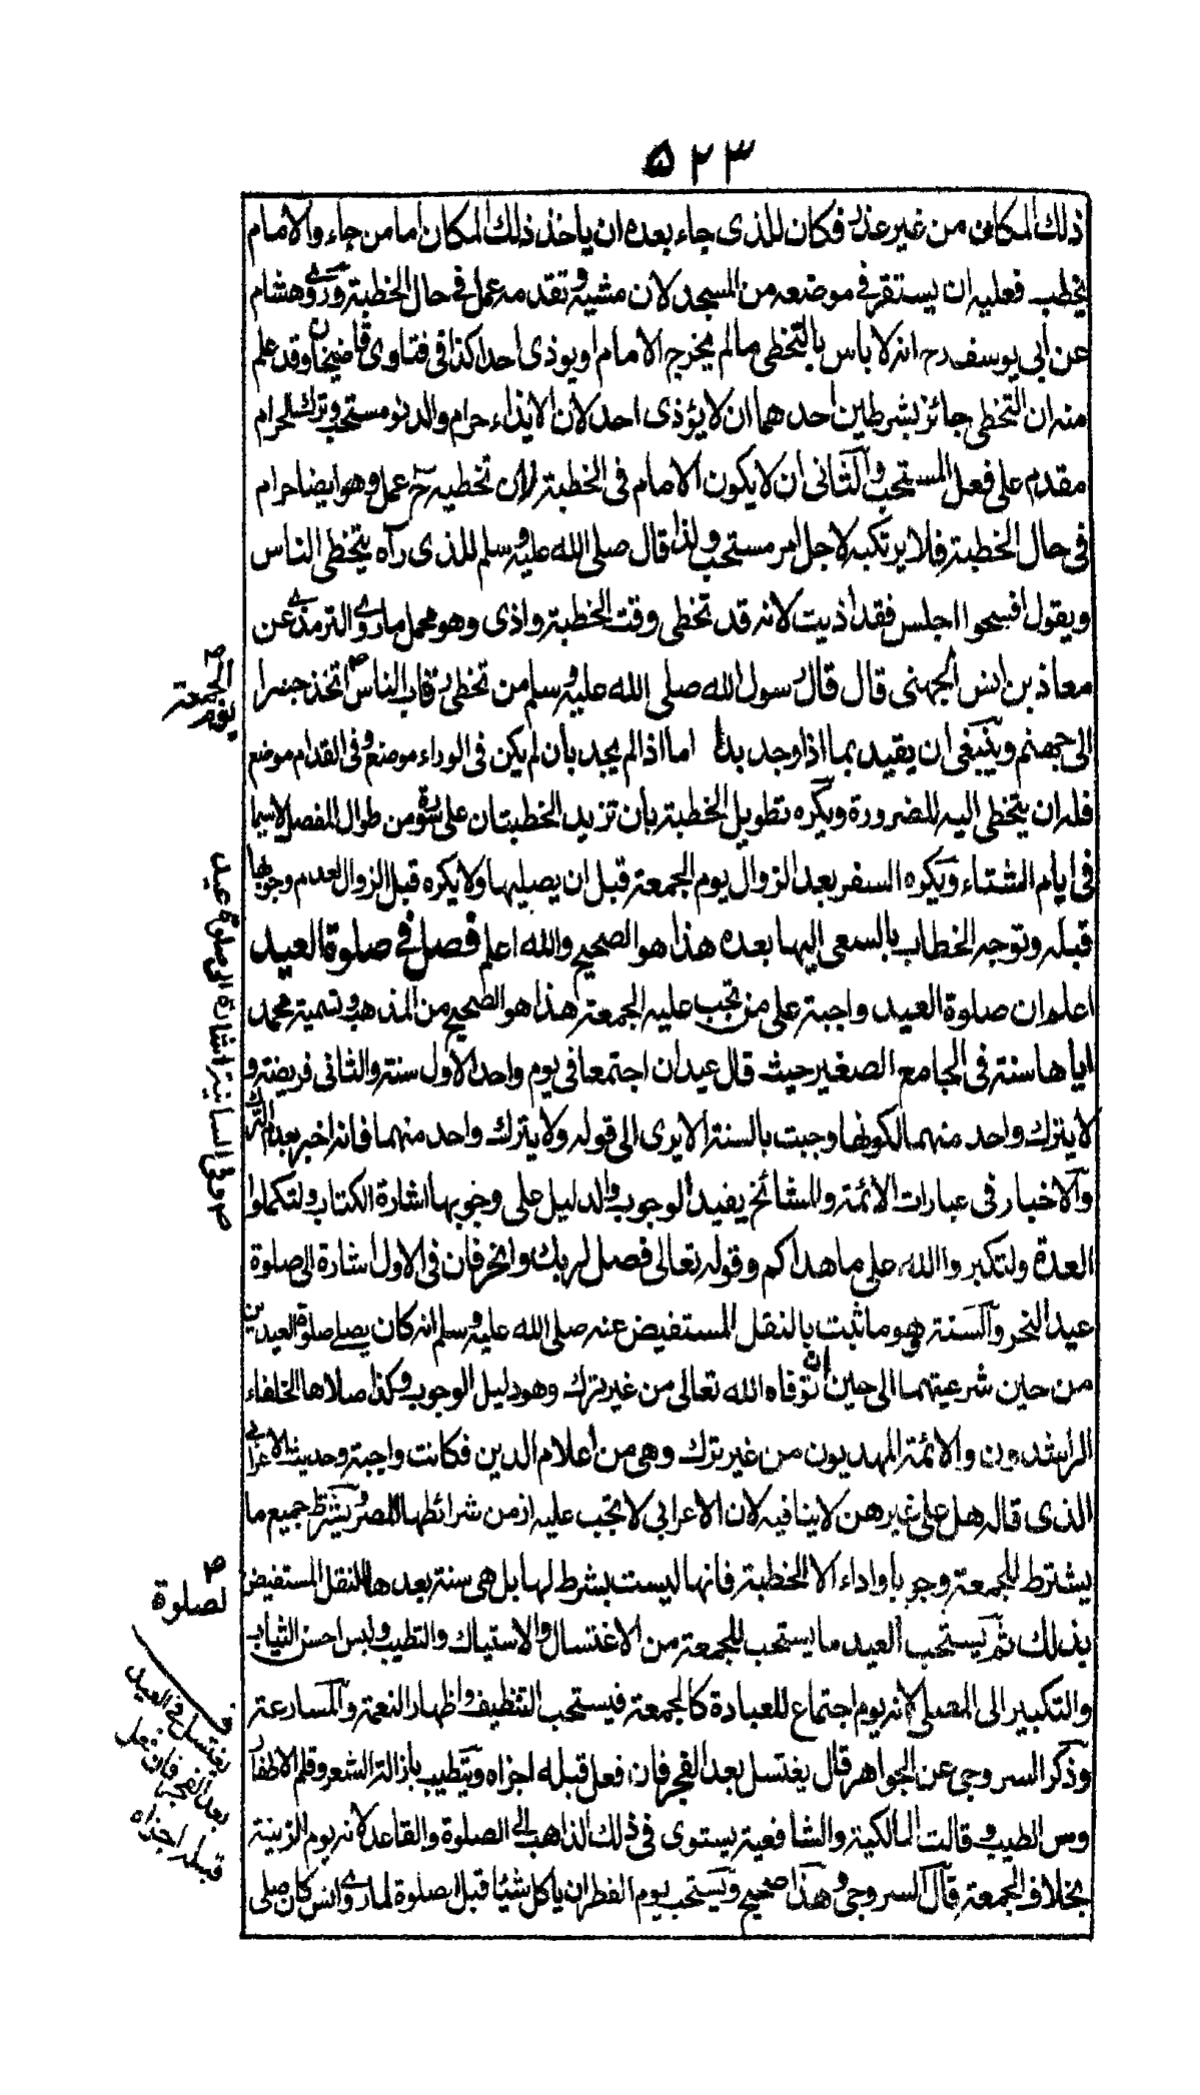 ٥٢٣
ذلك المكان من غير عذر فكان للذى جاء بعده ان ياخذ ذلك المكان اما من جاء والامام
يخطب فعليه ان يستقر فى موضعه من المسجد لان مشيه وتقدمه عمل فى حال الخطبة وروى هشام
عن ابى يوسف رح انه لا باس بالتخطى مالم يخرج الامام او يوذى احدا كذا فى فتاوى قاضيخان وقد علم
منه ان التخطى جائز بشرطين احدهما ان لا يؤذى احد لان الايذاء حرام والدنو مستحب وترك الحرام
مقدم على فعل المستحب والثانى ان لا يكون الامام فى الخطبة لان تخطيه ح عمل وهو ايضا حرام
فى حال الخطبة فلا يرتكبه لاجل امر مستحب ولذا قال صلى الله عليه وسلم للذى رآه يتخطى الناس
ويقول افسحوا اجلس فقد اذيت لانه قد تخطى وقت الخطبة واذى وهو محمل ما روى الترمذى عن
معاذ بن انس الجهنى قال قال رسول الله صلى الله عليه وسلم من تخطى رقاب الناس اتخذ جسرا
يوم الجمعة صح
الى جهنم وينبغى ان يقيد بما اذا وجد بدا اما اذا لم يجد بان لم يكن فى الوراء موضع وفى القدام موضع
فله ان يتخطى اليه للضرورة ويكره تطويل الخطبة بان تزيد الخطبتان على سورة من طوال المفصل لاسيما
فى ايام الشتاء ويكره السفر بعد الزوال يوم الجمعة قبل ان يصليها ولا يكره قبل الزوال لعدم وجوبها
قبله وتوجه الخطاب بالسعى اليها بعده هذا هو الصحيح والله اعلم فصل فى صلوة العيد
اعلم ان صلوة العيد واجبة على من تجب عليه الجمعة هذا هو الصحيح من المذهب وتسمية محمد
اياها سنة فى الجامع الصغير حيث قال عيدان اجتمعا فى يوم واحد الاول سنة والثانى فريضة و
لا يترك واحد منهما لكونها وجبت بالسنة الا يرى الى قوله ولا يترك واحد منهما فانه اخبر بعدم الترك
والاخبار فى عبارات الائمة والمشائخ يفيد الوجوب والدليل على وجوبها اشارة الكتاب ولتكملوا
العدة ولتكبروا الله على ما هداكم وقوله تعالى فصل لربك وانحر فان فى الاول اشارة الى صلوة
عيد النحر والسنة وهو ما ثبت بالنقل المستفيض عنه صلى الله عليه وسلم انه كان يصلى صلوة العيدين
من حين شرعيتهما الى حين ان توفاه الله تعالى من غير ترك وهو دليل الوجوب وكذا صلاها الخلفاء
الراشدون والائمة المهديون من غير ترك وهى من اعلام الدين فكانت واجبة وحديث الاعرابى
الذى قاله هل على غيرهن لا ينافيه لان الاعرابى لا تجب عليه اذ من شرائطها المصر ويشترط جميع ما
يشترط للجمعة وجوبا واداء الا الخطبة فانها ليست بشرط لها بل هى سنة بعدها للنقل المستفيض
لصلوة صح
بذلك ثم يستحب العيد ما يستحب للجمعة من الاغتسال والاستياك والتطيب ولبس احسن الثياب
والتكبير الى المصلى لانه يوم اجتماع للعبادة كالجمعة فيستحب التنظيف واظهار النعمة والمسارعة
وذكر السروجى عن الجواهر قال يغتسل بعد الفجر فان فعل قبله اجزاه ويتطيب بازالة الشعر وقلم الاظفار
يغتسل فى العيد
بعد الفجر فان فعل
قبله اجزاه
ومس الطيب وقالت المالكية والشافعية يستوى فى ذلك الذاهب الى الصلوة والقاعد لانه يوم الزينة
بخلاف الجمعة قال السروجى وهذا صحيح ويستحب يوم الفطر ان ياكل شيئا قبل الصلوة لما روى انس كان صلى